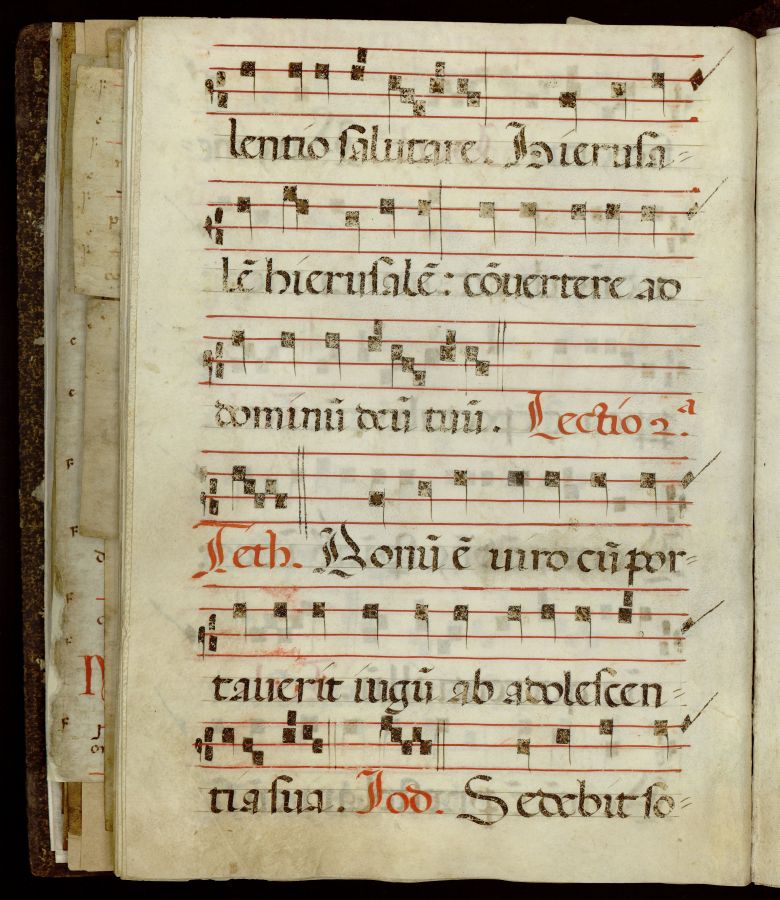 lentio salutare. Hierusa=
lē hierusalē: cōuertere ad
dominū deū tuū. Lectio 2.ª
Teth. Bonū ē uiro cū por=
tauerit iugū ab adolescen=
tia sua. Iod. Sedebit so=